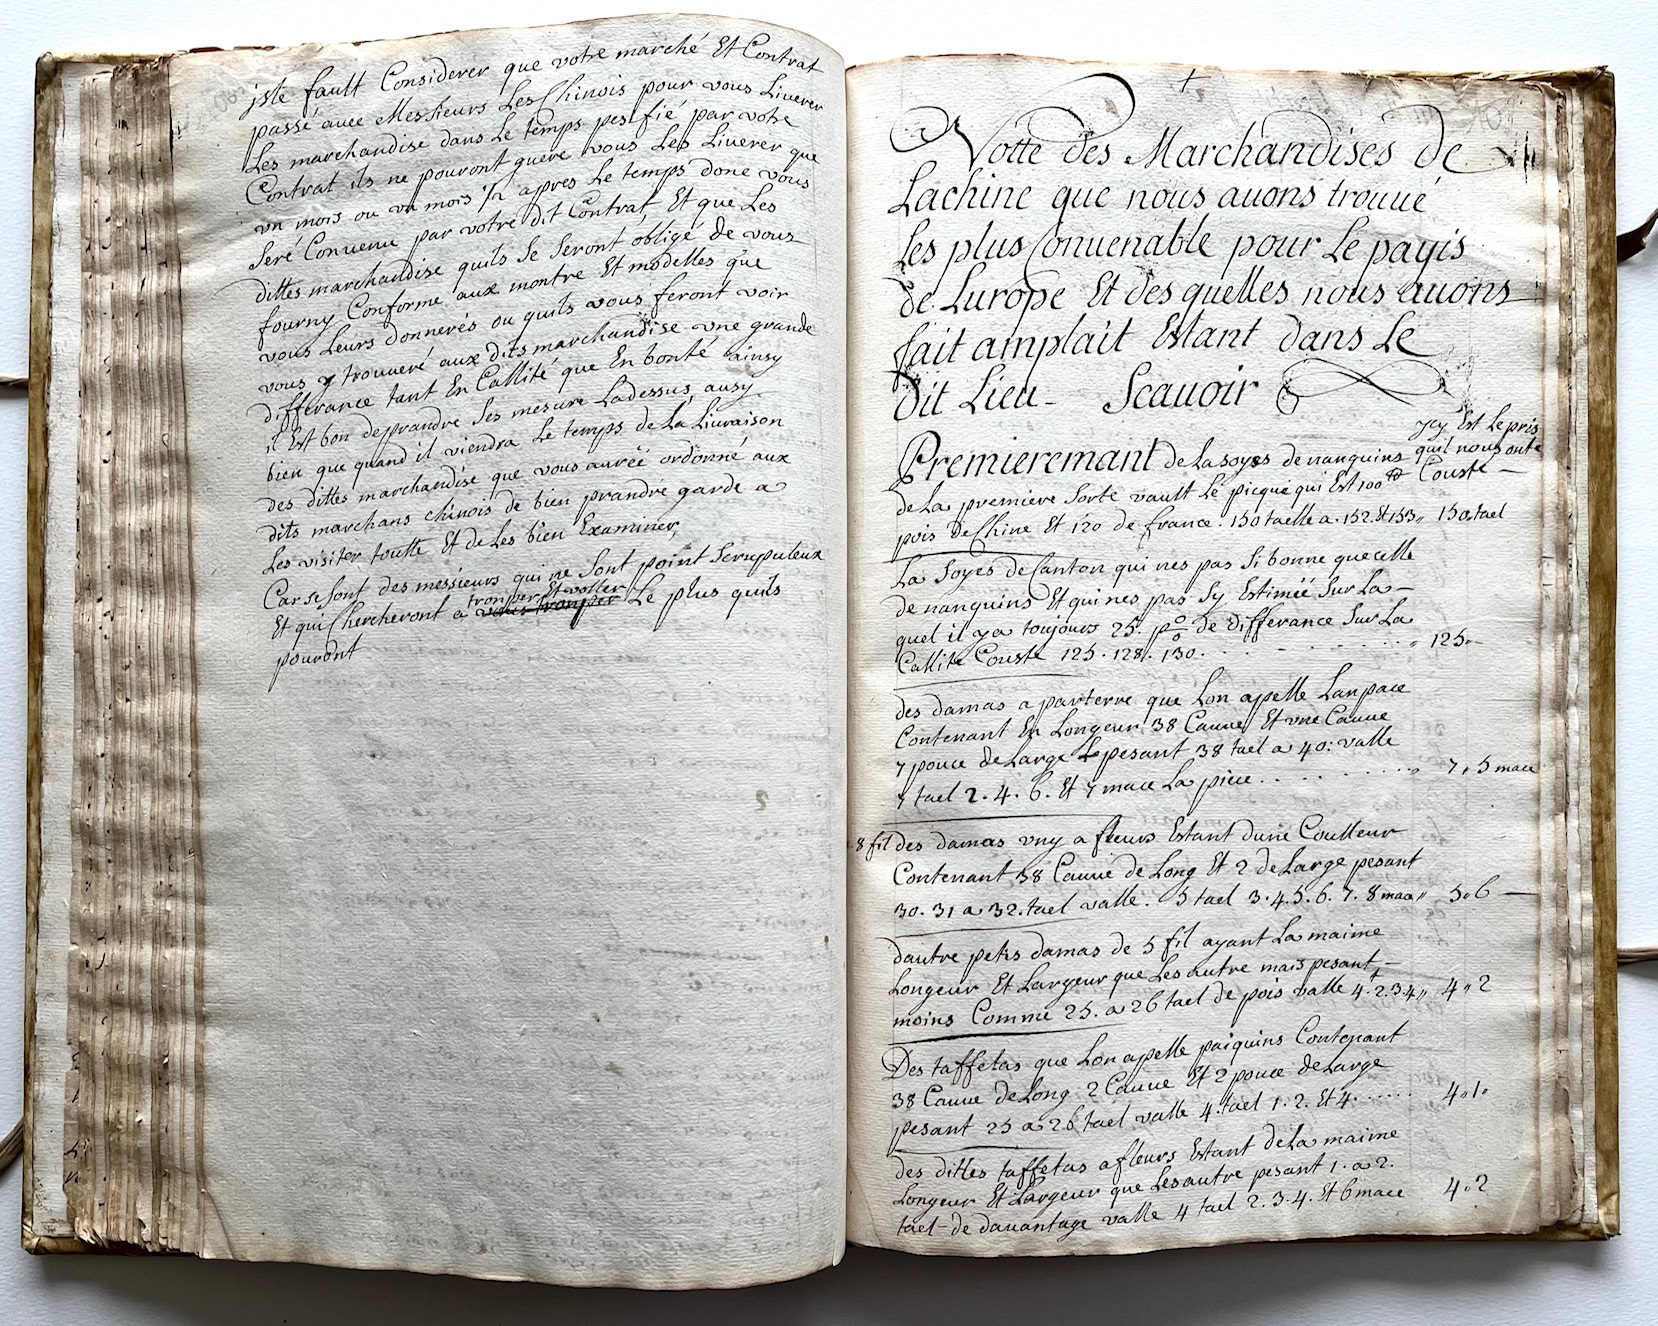 jsle fault Considerer que votre marché Et Contrat
passé auec Messieurs Les Chinois pour vous Liuerer
Les marchandise dans Le temps pesfié par votre
Contrat ils ne pouront guere vous Les Liuerer que
vn mois ou vn mois 1/2 apres Le temps donc vous
Seré Conuenu par votre dit Contrat, Et que Les
dittes marchandise quils Se Seront obligé de vous
fourny Conforme aux montre Et modelles que
vous Leurs donnerés ou quils vous feront voir
vous y trouueré aux dits marchandise vne grande
differance tant En Callité que En bonté ainsy
il Est bon deprandre Ses mesure Ladessus, ausy
bien que quand il viendra Le temps de La Liuraison
des dittes marchandise que vous auréé ordonné aux
dits marchans chinois de bien prandre garde a
Les visiter toutte Et de Les bien Examiner,
Car se font des messieurs qui ne Sont point Scrupuleux
Et qui Chercheront a tromper Et voller Le plus quils
pouront
Notte des Marchandises de
Lachine que nous auons trouué
Les plus Conuenable pour Le payis
de Lurope Et des quelles nous auons
fait amplait Estant dans Le
dit Lieu - Scauoir
jcy Est Le pris
Premieremant de La soyes de nanquins quil nous onte
de La premiere Sorte vault Le picque qui Est 100 Couste
pois De Chine Et 120 de france. 150 taelle a. 152. Et 153 150 tael
La Soyes de Canton qui nes pas Si bonne que celle
de nanquins Et qui nes pas Sy Estimeé Sur La
quel il ya toujours 25. p% de differance Sur La
Callité Couste 125. 128. 130. 125
des damas a parterre que Lon apelle Lanpace
Contenant En Longeur 38 Cauue Et vne Cauue
7 pouce de Large pesant 38 tael a 40: valle
7 tael 2. 4. 6. Et 7 mace La piece 7, 5 mace
8 fil des damas vny a fleurs Estant dune Coulleur
Contenant 38 Cauue de Long Et 2 de Large pesant
30. 31 a 32. tael valle. 5 tael 3. 4. 5. 6. 7. 8 mace 5. 6
dautre petis damas de 5 fil ayant La maime
Longeur Et Largeur que Les autre mais pesant
moins Comme 25. a 26 tael de pois valle 4. 2. 3. 4 4, 2
Des taffetas que Lon apelle paiquins Contenant
38 Cauue de Long 2 Cauue Et 2 pouce de Large
pesant 25 a 26 tael valle 4. tael 1. 2. Et 4. 4. 1
des dittes taffetas a fleurs Estant de La maime
Longeur Et Largeur que Les autre pesant 1. a 2.
tael de dauantage valle 4 tael 2. 3. 4. Et 6 mace 4. 2